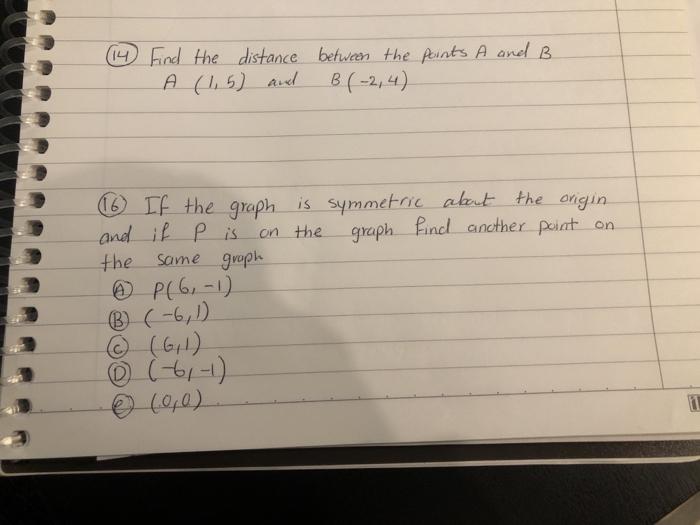 14 Find the distance between the points A and B
A (1,5) and B(-2,4)
16 If the graph is symmetric about the origin
and if P is on the graph find another point on
the same graph
A P(6,-1)
B (-6,1)
C (6,1)
D (-6,-1)
e (0,0)